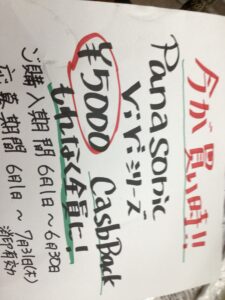 今が買い時!!
Panasonic
ViVシリーズ
¥5000 CashBack
もれなく全員に!
ご購入期間 6月1日〜6月30日
応募期間 6月1日 〜 7月31日(水)
消印有効